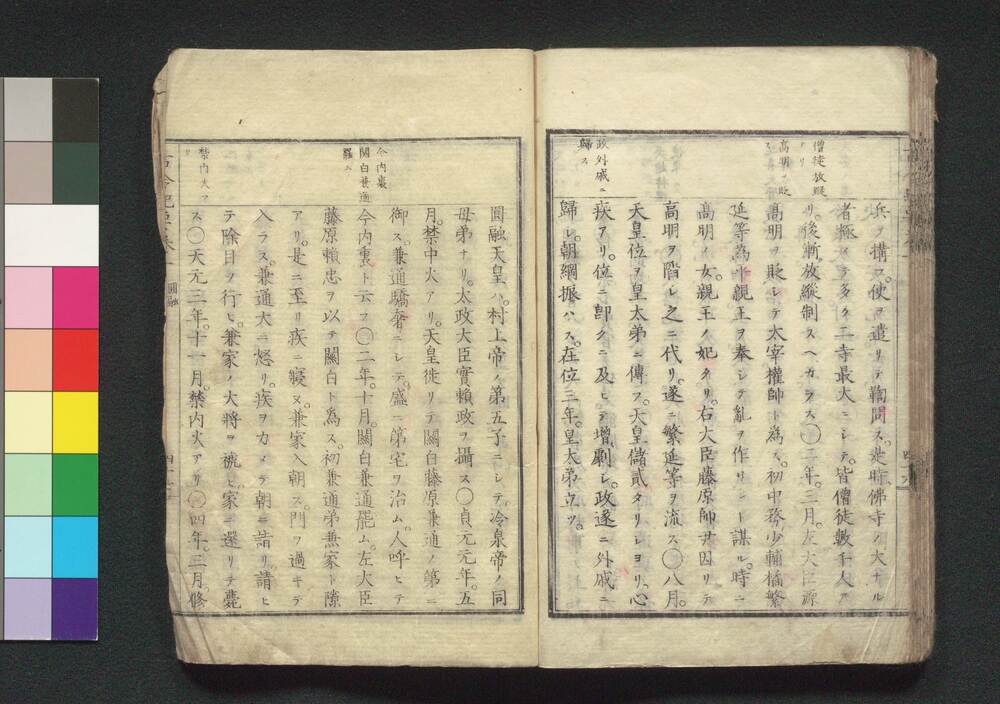 僧徒放縱
ナリ
高明ヲ貶
ス
政外戚ニ
歸ス
兵ヲ構フ。使ヲ遣リテ鞫問ス。是時佛寺ノ大ナル
者極メテ多ク二寺最大ニシテ。皆僧徒數千人ア
リ。後漸放縱制スヘカラス〇二年。三月。左大臣源
高明ヲ貶シテ太宰權師ト為ス。初中務少輔橘繁
延等為平親王ヲ奉シテ亂ヲ作リニト謀ル。時ニ
高明ノ女。親王ノ妃タリ。右大臣藤原師尹因リテ
高明ヲ階シ之ニ代リ。遂ニ繁延等ヲ流ス〇八月。
天皇位ヲ皇太弟ニ傳フ。天皇儲貳タリシヨリ。心
疾アリ。位ニ卽クニ及ヒテ增劇シ。政遂ニ外戚ニ
歸シ。朝綱振ハス。在位三年。皇太弟立ツ。
今内裏
關白兼通
罷ム
禁内火ア
リ
圓融天皇ハ。村上帝ノ第五子ニシテ。冷泉帝ノ同
母弟ナリ。太政大臣實賴政ヲ攝ス〇貞元元年。五
月。禁中火アリ。天皇徙リテ關白藤原兼通ノ第ニ
御ス。兼通驕奢ニシテ。盛ニ第宅ヲ治ム。人呼ヒテ
今内裏ト云フ〇二年。十月。關白兼通罷ム。左大臣
藤原賴忠ヲ以テ關白ト為ス。初兼通弟兼家ト隙
アリ。是ニ至リ疾ニ寢ヌ。兼家入朝ス。門ヲ過キテ
入ラス。兼通大ニ怒リ。疾ヲカメテ朝ニ詣リ。請ヒ
テ除目ヲ行ヒ。兼家ノ大將ヲ褫ヒ。家ニ還リテ薨
ス〇天元二年。十一月。禁内火アリ〇四年。三月。修
圓融